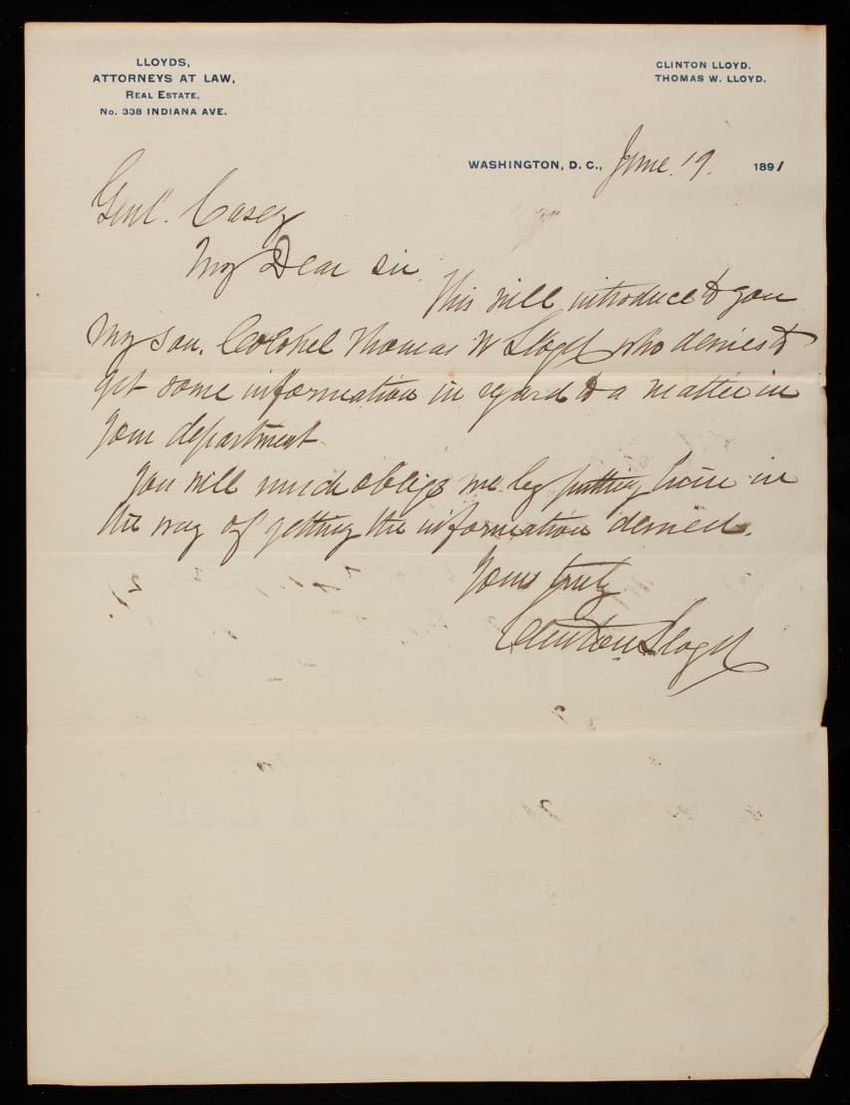 LLOYDS,
ATTORNEYS AT LAW,
REAL ESTATE,
No. 338 INDIANA AVE.
CLINTON LLOYD.
THOMAS W. LLOYD.
WASHINGTON, D. C., June 19. 1891
Genl. Casey
My Dear Sir
This will introduce to you
my son, Colonel Thomas W Lloyd who desires to
get some information in regard to a matter in
your department
You will much oblige me by putting him in
the way of getting the information desired.
Yours truly
Clinton Lloyd